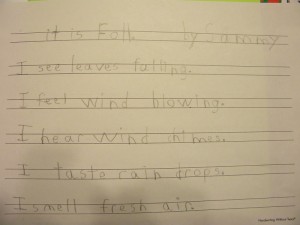 it is Fall. by Sammy
I see leaves falling.
I feel wind blowing.
I hear wind chimes.
I taste rain drops.
I smell fresh air.
Handwriting Without Tears